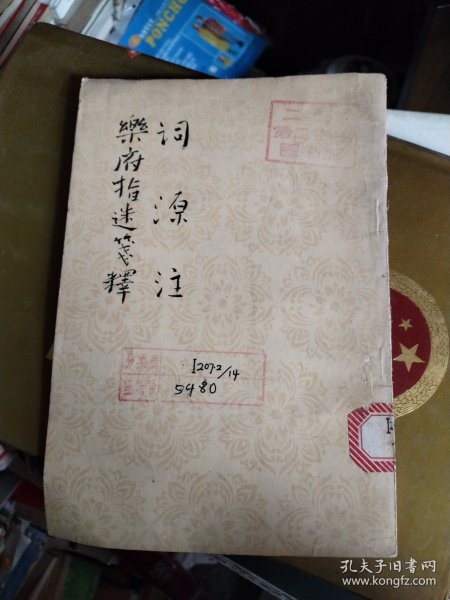 詞源注
樂府指迷箋釋
I207.2/14
5480
PONCHO
孔夫子旧书网
www.kongfz.com